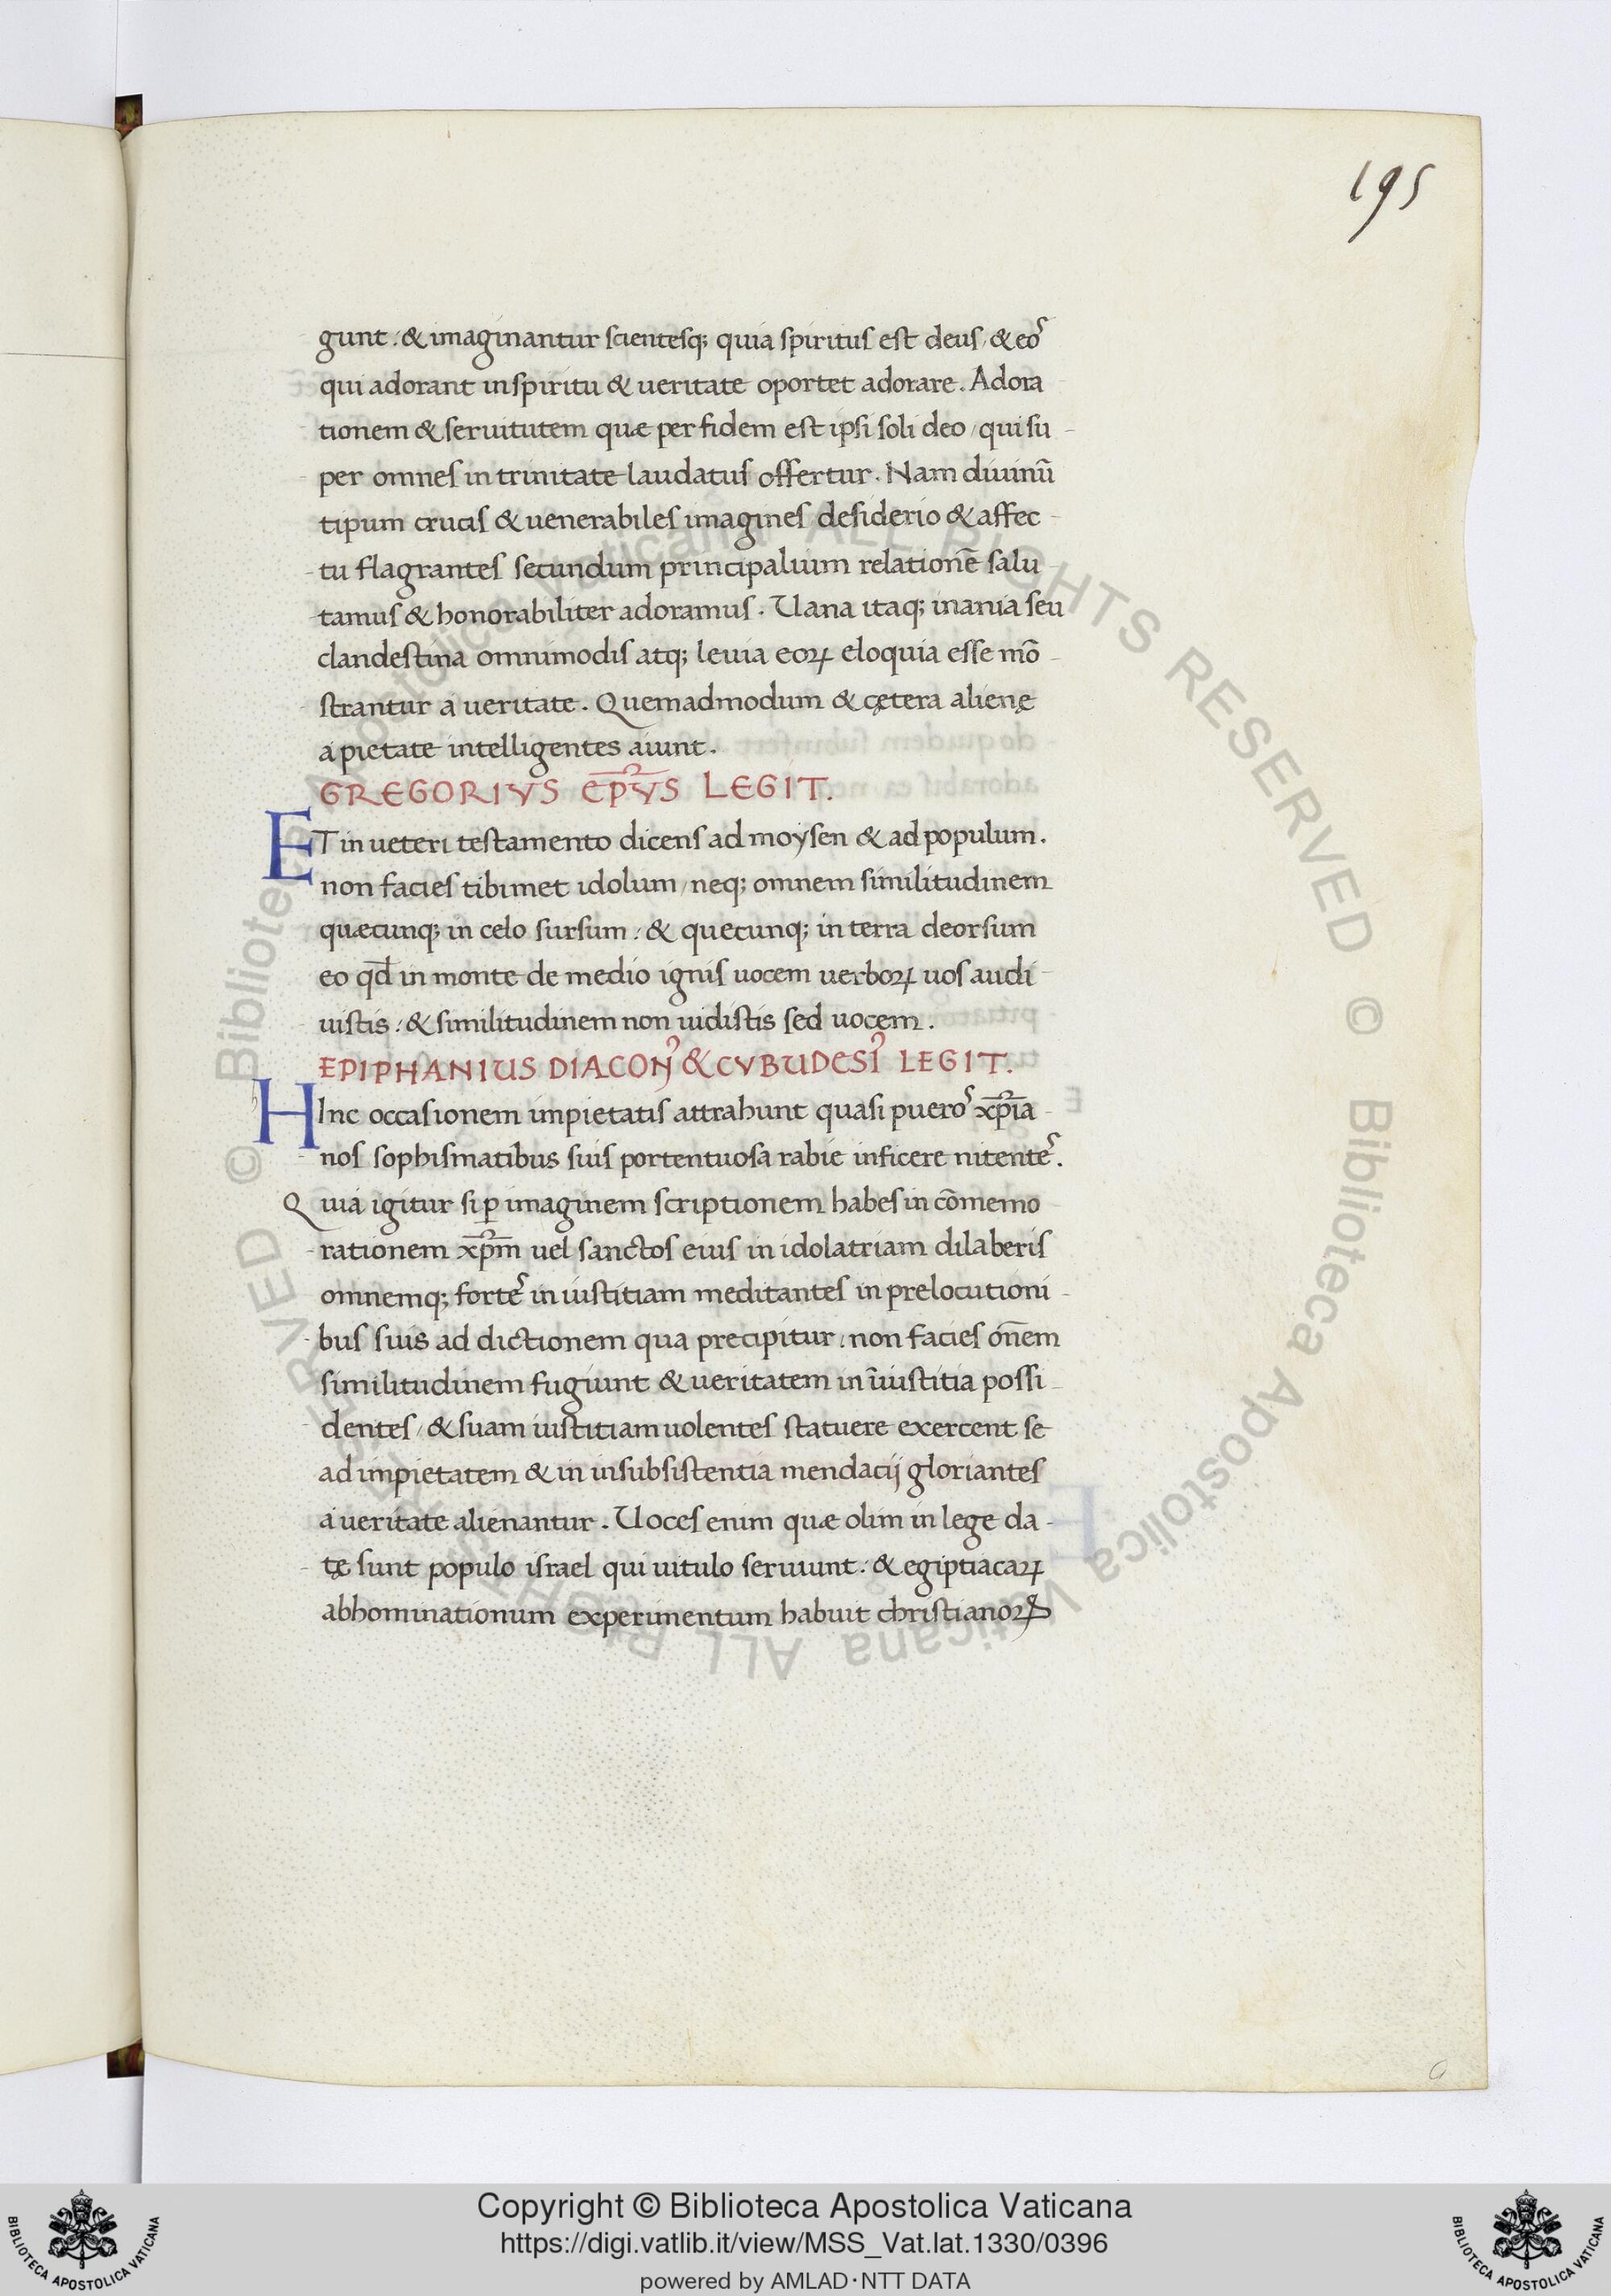 195
gunt: & imaginantur scientesq; quia spiritus est deus, & eoˢ
qui adorant in spiritu & ueritate oportet adorare. Adora
tionem & seruitutem quæ per fidem est ipsi soli deo, qui su-
per omnes in trinitate laudatus offertur. Nam diuinū
tipum crucis & uenerabiles imagines desiderio & affec-
tu flagrantes secundum principalium relationē salu-
tamus & honorabiliter adoramus. Uana itaq; inania seu
clandestina omnimodis atq; leuia eoꝝ eloquia esse mō-
strantur a ueritate. Quemadmodum & cętera alienę
a pietate intelligentes aiunt.
GREGORIVS EP̅VS LEGIT.
ET in ueteri testamento dicens ad moysen & ad populum.
non facies tibimet idolum, neq; omnem similitudinem
quæcunq; in celo sursum: & quecunq; in terra deorsum
eo qd̅ in monte de medio ignis uocem uerboꝝ uos audi-
uistis: & similitudinem non uidistis sed uocem.
EPIPHANIUS DIACONꝰ & CVBUDESIꝰ LEGIT.
HInc occasionem impietatis attrahunt quasi pueroˢ xp̅ia-
nos sophismatibus suis portentuosa rabie inficere nitenteˢ.
Quia igitur si ꝑ imaginem scriptionem habes in cōmemo
rationem xp̅m uel sanctos eius in idolatriam dilaberis
omnemq; forteˢ in iustitiam meditantes in prelocutioni-
bus suis ad dictionem qua precipitur, non facies on̅em
similitudinem fugiunt & ueritatem in ūiustitia possi-
dentes, & suam iustitiam uolentes statuere exercent se
ad impietatem & in insubsistentia mendacij gloriantes
a ueritate alienantur. Uoces enim quæ olim in lege da-
tę sunt populo israel qui uitulo seruiunt: & egiptiacaꝝ
abhominationum experimentum habuit christianoꝝ
© Biblioteca Apostolica Vaticana ALL RIGHTS RESERVED © Biblioteca Apostolica Vaticana ALL RIGHTS RESERVED
Copyright © Biblioteca Apostolica Vaticana
https://digi.vatlib.it/view/MSS_Vat.lat.1330/0396
powered by AMLAD·NTT DATA
BIBLIOTECA APOSTOLICA VATICANA
BIBLIOTECA APOSTOLICA VATICANA